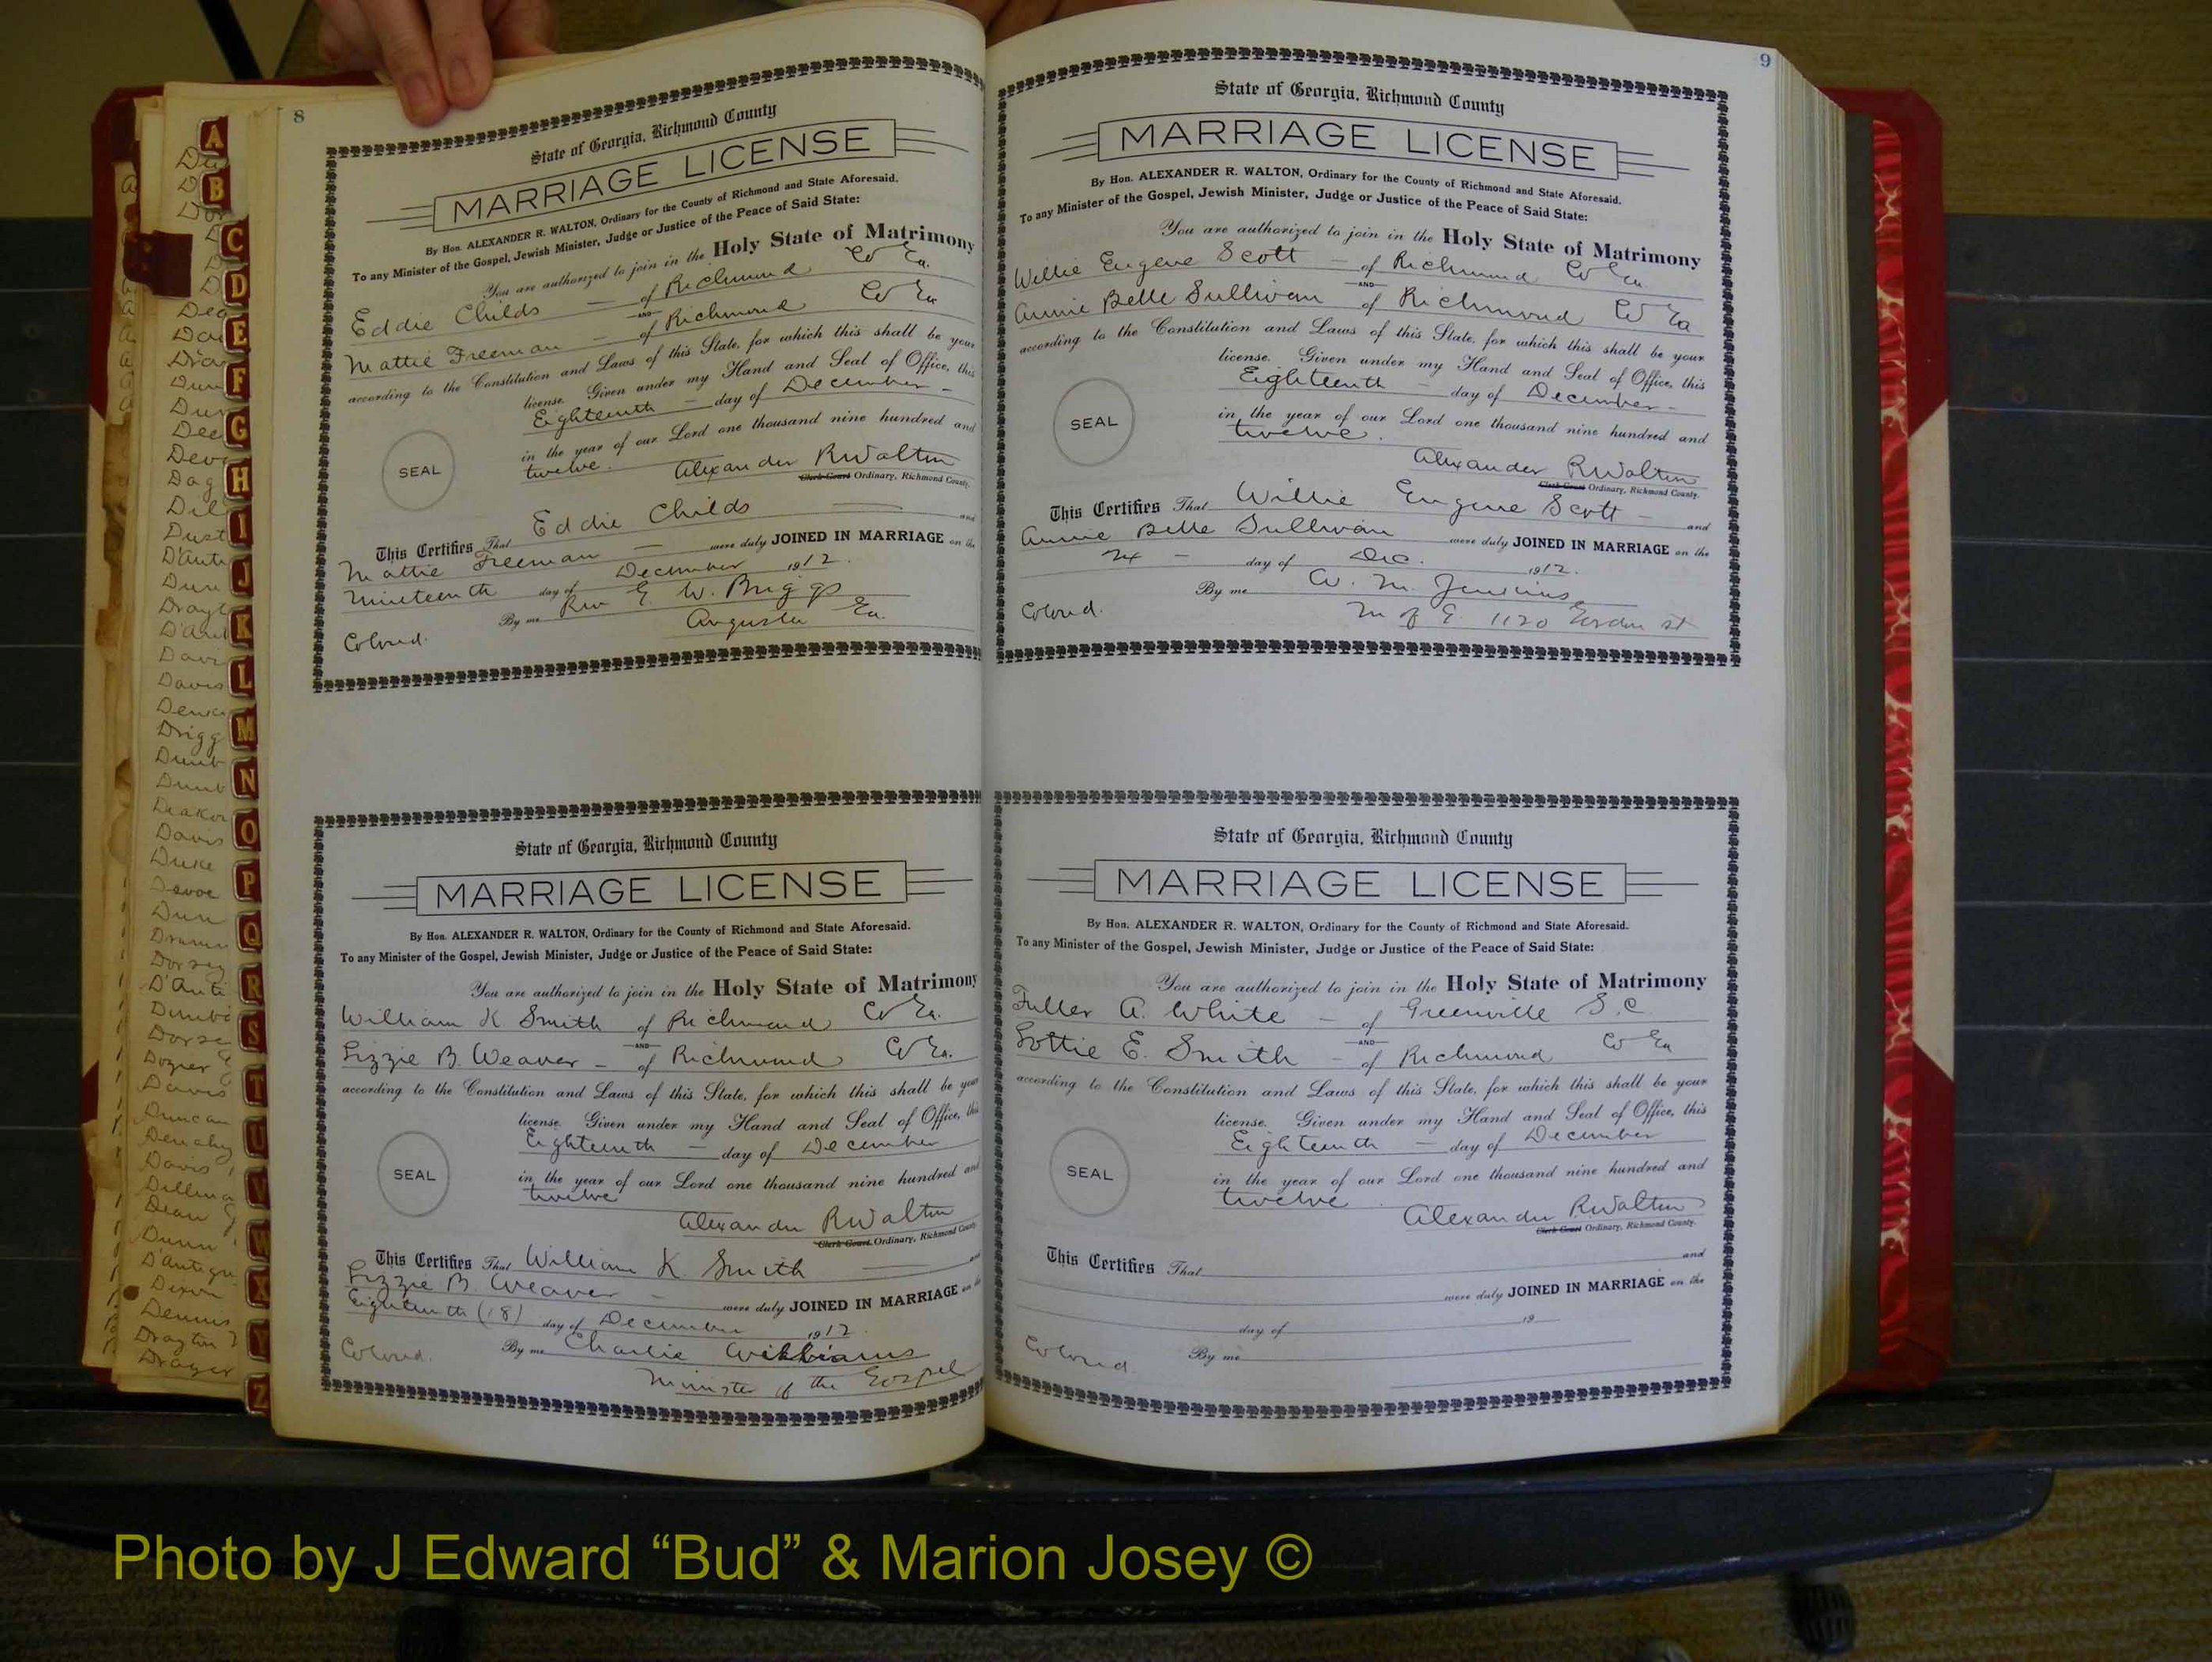 8
State of Georgia, Richmond County
MARRIAGE LICENSE
By Hon. ALEXANDER R. WALTON, Ordinary for the County of Richmond and State Aforesaid.
To any Minister of the Gospel, Jewish Minister, Judge or Justice of the Peace of Said State:
You are authorized to join in the Holy State of Matrimony
Eddie Childs — of Richmond Co Ga.
AND
Mattie Freeman — of Richmond Co Ga
according to the Constitution and Laws of this State, for which this shall be your
license. Given under my Hand and Seal of Office, this
Eighteenth — day of December —
in the year of our Lord one thousand nine hundred and
twelve. Alexander R Walton
SEAL
Clerk Court Ordinary, Richmond County.
This Certifies That Eddie Childs and
Mattie Freeman — were duly JOINED IN MARRIAGE on the
Nineteenth day of December 1912.
By me Rev E. W. Briggs
Colored. Augusta Ga.
State of Georgia, Richmond County
MARRIAGE LICENSE
By Hon. ALEXANDER R. WALTON, Ordinary for the County of Richmond and State Aforesaid.
To any Minister of the Gospel, Jewish Minister, Judge or Justice of the Peace of Said State:
You are authorized to join in the Holy State of Matrimony
William K. Smith of Richmond Co Ga.
AND
Lizzie B. Weaver — of Richmond Co Ga.
according to the Constitution and Laws of this State, for which this shall be your
license. Given under my Hand and Seal of Office, this
Eighteenth — day of December
SEAL
in the year of our Lord one thousand nine hundred and
twelve
Alexander R Walton
Clerk Court Ordinary, Richmond County.
This Certifies That William K. Smith and
Lizzie B. Weaver — were duly JOINED IN MARRIAGE on the
Eighteenth (18) day of December 1912.
Colored. By me Charlie Williams
Minister of the Gospel
9
State of Georgia, Richmond County
MARRIAGE LICENSE
By Hon. ALEXANDER R. WALTON, Ordinary for the County of Richmond and State Aforesaid.
To any Minister of the Gospel, Jewish Minister, Judge or Justice of the Peace of Said State:
You are authorized to join in the Holy State of Matrimony
Willie Eugene Scott — of Richmond Co Ga
AND
Annie Belle Sullivan of Richmond Co Ga
according to the Constitution and Laws of this State, for which this shall be your
license. Given under my Hand and Seal of Office, this
Eighteenth — day of December —
SEAL
in the year of our Lord one thousand nine hundred and
twelve.
Alexander R Walton
Clerk Court Ordinary, Richmond County.
This Certifies That Willie Eugene Scott — and
Annie Belle Sullivan were duly JOINED IN MARRIAGE on the
— day of Dec. 1912.
By me W. M. Jenkins
Colored. M of G. 1120 Gordon st
State of Georgia, Richmond County
MARRIAGE LICENSE
By Hon. ALEXANDER R. WALTON, Ordinary for the County of Richmond and State Aforesaid.
To any Minister of the Gospel, Jewish Minister, Judge or Justice of the Peace of Said State:
You are authorized to join in the Holy State of Matrimony
Fuller A. White — of Greenville S.C.
AND
Lottie E. Smith — of Richmond Co Ga
according to the Constitution and Laws of this State, for which this shall be your
license. Given under my Hand and Seal of Office, this
Eighteenth — day of December
SEAL
in the year of our Lord one thousand nine hundred and
twelve.
Alexander R Walton
Clerk Court Ordinary, Richmond County.
This Certifies That and
were duly JOINED IN MARRIAGE on the
day of 19
Colored By me
A
B
C
D
E
F
G
H
I
J
K
L
M
N
O
P
Q
R
S
T
U
V
W
X
Y
Z
Davis
Duke
Devoe
Dorsey
Dozier
Davis
Duncan
Davis
Dean
Dunn
Dixon
Dennis
Photo by J Edward “Bud” & Marion Josey ©